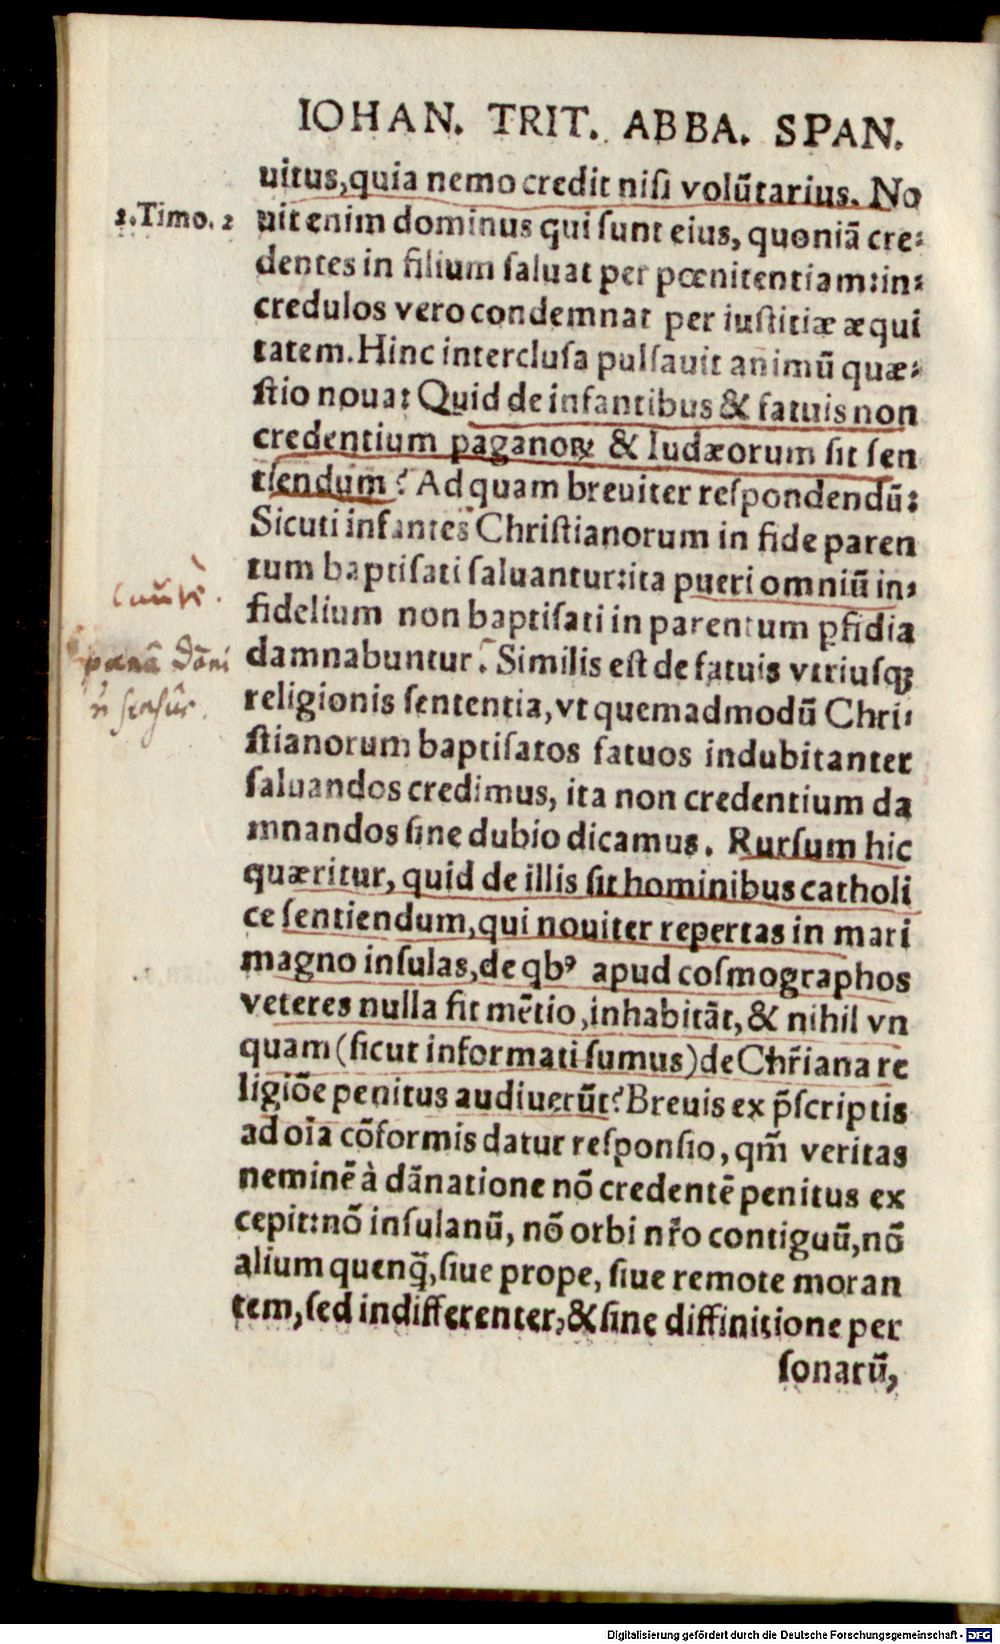 IOHAN. TRIT. ABBA. SPAN.
uitus,quia nemo credit niſi volũtarius. No
2.Timo. 2
uit enim dominus qui ſunt eius, quoniã cre⸗
dentes in filium ſaluat per pœnitentiam:in⸗
credulos vero condemnat per iuſtitiæ æqui
tatem.Hinc intercluſa pulſauit animũ quæ⸗
ſtio noua: Quid de infantibus & fatuis non
credentium paganoꝝ & Iudæorum ſit ſen
tiendum? Ad quam breuiter reſpondendũ:
Sicuti infantes Chriſtianorum in fide paren
tum baptiſati ſaluantur:ita pueri omniũ in⸗
fidelium non baptiſati in parentum ꝑfidia
damnabuntur. Similis eſt de fatuis vtriuſqꝫ
religionis ſententia, vt quemadmodũ Chri⸗
ſtianorum baptiſatos fatuos indubitanter
ſaluandos credimus, ita non credentium da
mnandos ſine dubio dicamus. Rurſum hic
quæritur, quid de illis ſit hominibus catholi
ce ſentiendum,qui nouiter repertas in mari
magno inſulas,de qbꝰ apud coſmographos
veteres nulla fit mẽtio,inhabitãt, & nihil vn
quam (ſicut informati ſumus) de Chr̃iana re
ligiõe penitus audiuerũt? Breuis ex p̃ſcriptis
ad oĩa cõformis datur reſponſio, qm̃ veritas
neminẽ à dãnatione nõ credentẽ penitus ex
cepit:nõ inſulanũ, nõ orbi nr̃o contiguũ,nõ
alium quenq̃,ſiue prope, ſiue remote moran
tem,ſed indifferenter,& ſine diffinitione per
ſonarũ,
Digitalisierung gefördert durch die Deutsche Forschungsgemeinschaft - DFG